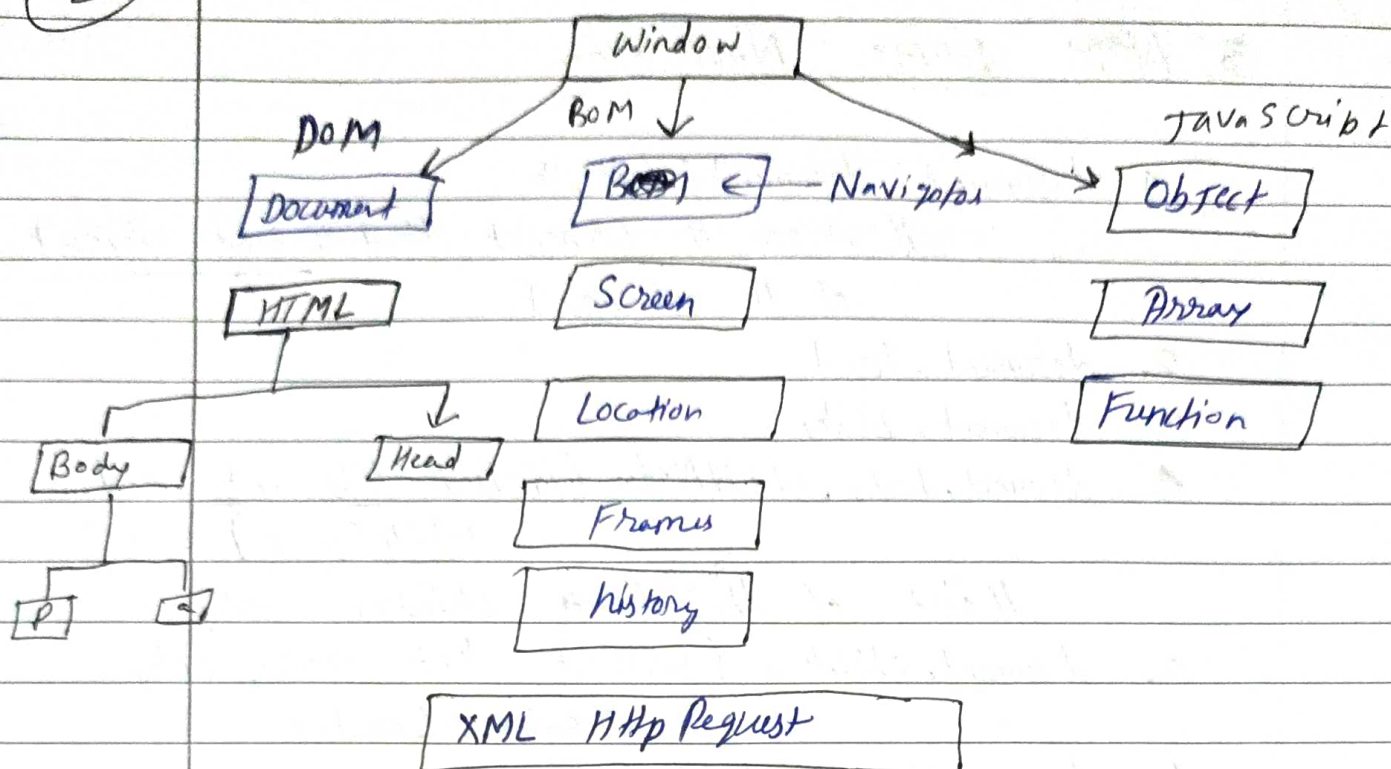 Window
DOM
BOM
JavaScript
Document
Navigator
Object
HTML
Screen
Array
Location
Function
Body
Head
Frames
history
P
a
XML HttpRequest